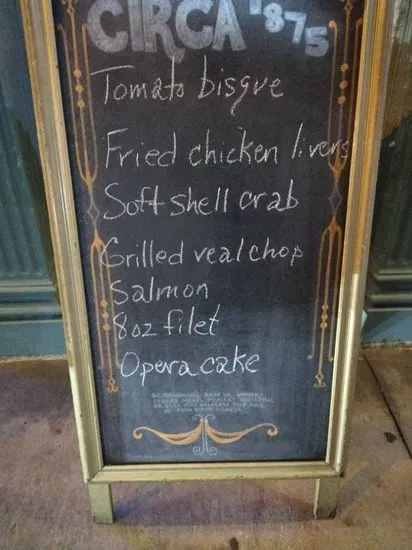 CIRCA 1875
Tomato bisque
Fried chicken livers
Soft shell crab
Grilled veal chop
Salmon
8oz filet
Opera cake